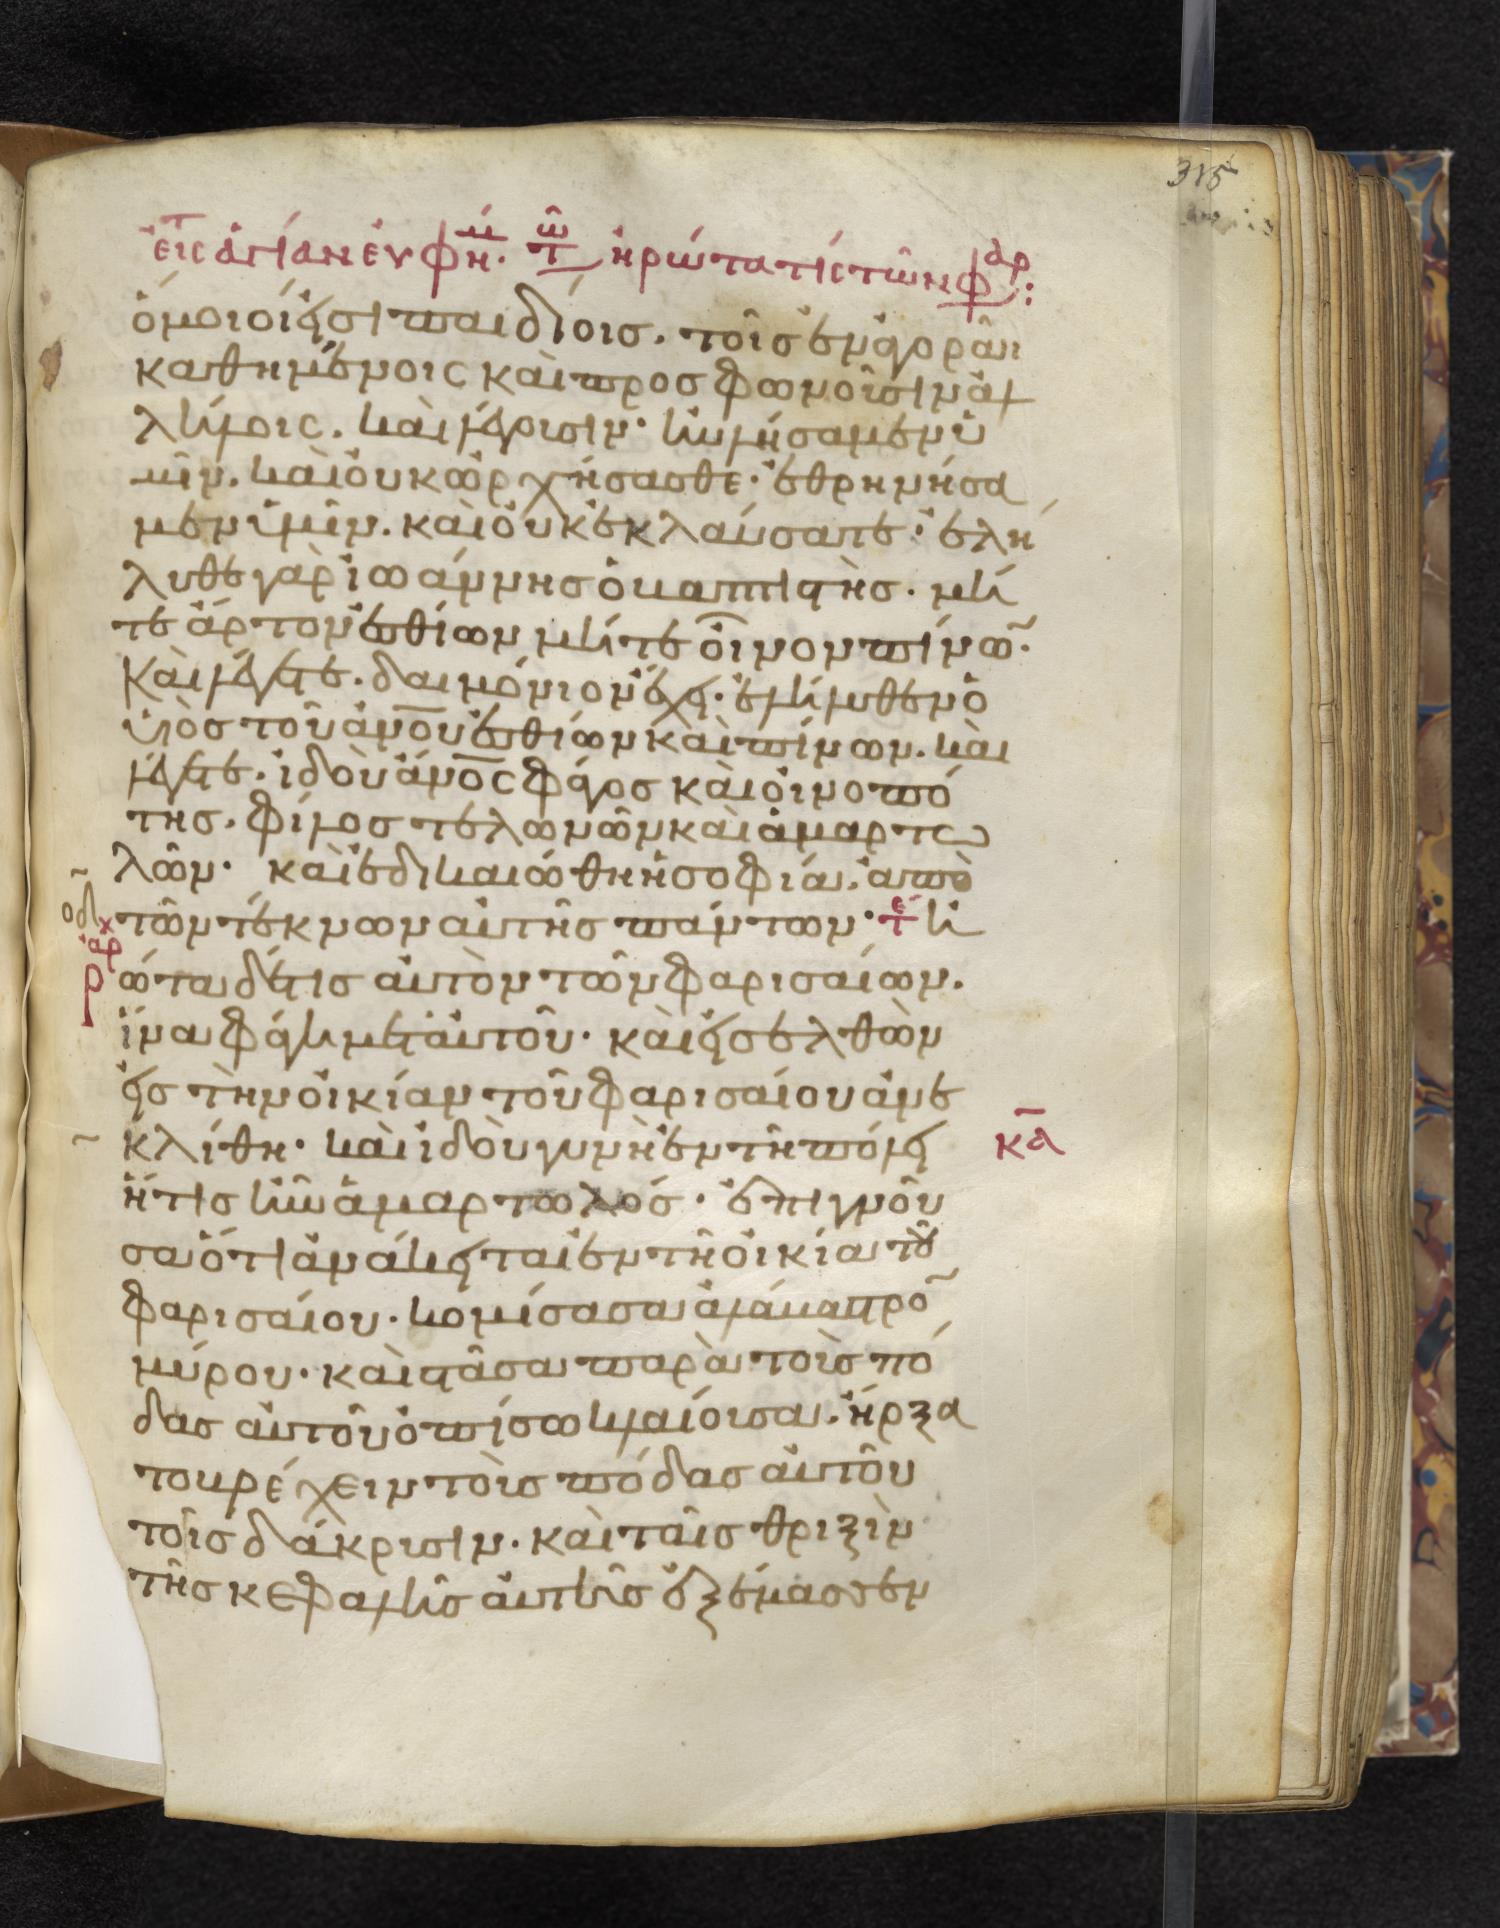 315
εἰς ἁγίαν εὐφημ· τῶ ἠρώτα τίς τῶν φαρ:
ὅμοιοί εἰσι παιδίοις· τοῖς ἐν ἀγορᾶι
καθημένοις καὶ προσφωνοῦσιν ἀλ
λήλοις. καὶ λέγουσιν· ηὐλήσαμεν ὑ
μῖν. καὶ οὐκ ὠρχήσασθε· ἐθρηνήσα
μεν ὑμῖν. καὶ οὐκ ἐκλαύσατε· ἐλή
λυθε γὰρ ἰωάννης ὁ βαπτιστὴς. μή
τε ἄρτον ἐσθίων μήτε οἶνον πίνω̃.
καὶ λέγετε. δαιμόνιον ἔχει. ἐλήλυθεν ὁ
υἱὸς τοῦ ἀν̅ο̅υ̅ ἐσθίων καὶ πίνων. καὶ
λέγετε. ἰδοὺ ἄν̅ο̅ς̅ φάγος καὶ οἰνοπό
της. φίλος τελωνῶν καὶ ἁμαρτω
λῶν· καὶ ἐδικαιώθη ἡ σοφία. ἀπὸ
τῶν τέκνων αὐτῆς πάντων· τε ἠ
αρχ
ρώτα δέ τις αὐτὸν τῶν φαρισαίων.
ἵνα φάγη μετ' αὐτοῦ· καὶ εἰσελθὼν
εἰς τὴν οἰκίαν τοῦ φαρισαίου ἀνε
κλίθη· καὶ ἰδοὺ γυνὴ ἐν τῆ πόλει
κα̅
ἥτις ἦν ἁμαρτωλός· ἐπιγνοῦ
σα ὅτι ἀνάκειται ἐν τῆ οἰκία τοῦ
φαρισαίου· κομίσασα ἀλάβαστρο̃
μύρου· καὶ στᾶσα παρὰ τοὺς πό
δας αὐτοῦ ὀπίσω κλαίουσα. ἤρξα
το βρέχειν τοὺς πόδας αὐτοῦ
τοῖς δάκρυσιν· καὶ ταῖς θριξὶν
τῆς κεφαλῆς αὐτῆς ἐξέμασσεν